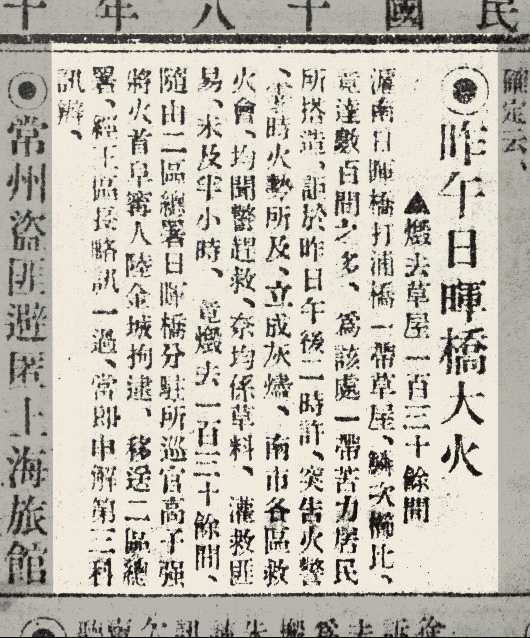 民國十八年十
確定云、
◉昨午日暉橋大火
▲燬去草屋一百三十餘間
滬南日暉橋打浦橋一帶草屋、鱗次櫛比、
竟達數百間之多、爲該處一帶苦力居民
所搭造、詎於昨日午後二時許、突告火警
、當時火勢所及、立成灰燼、南市各區救
火會、均聞警趕救、奈均係草料、灌救匪
易、未及半小時、竟燬去一百三十餘間、
隨由二區總署日暉橋分駐所巡官高子强
將火首阜甯人陸金城拘逮、移送二區總
署、經王區長略訊一過、當卽申解第三科
訊辦、
◉常州盜匪避匿上海旅館